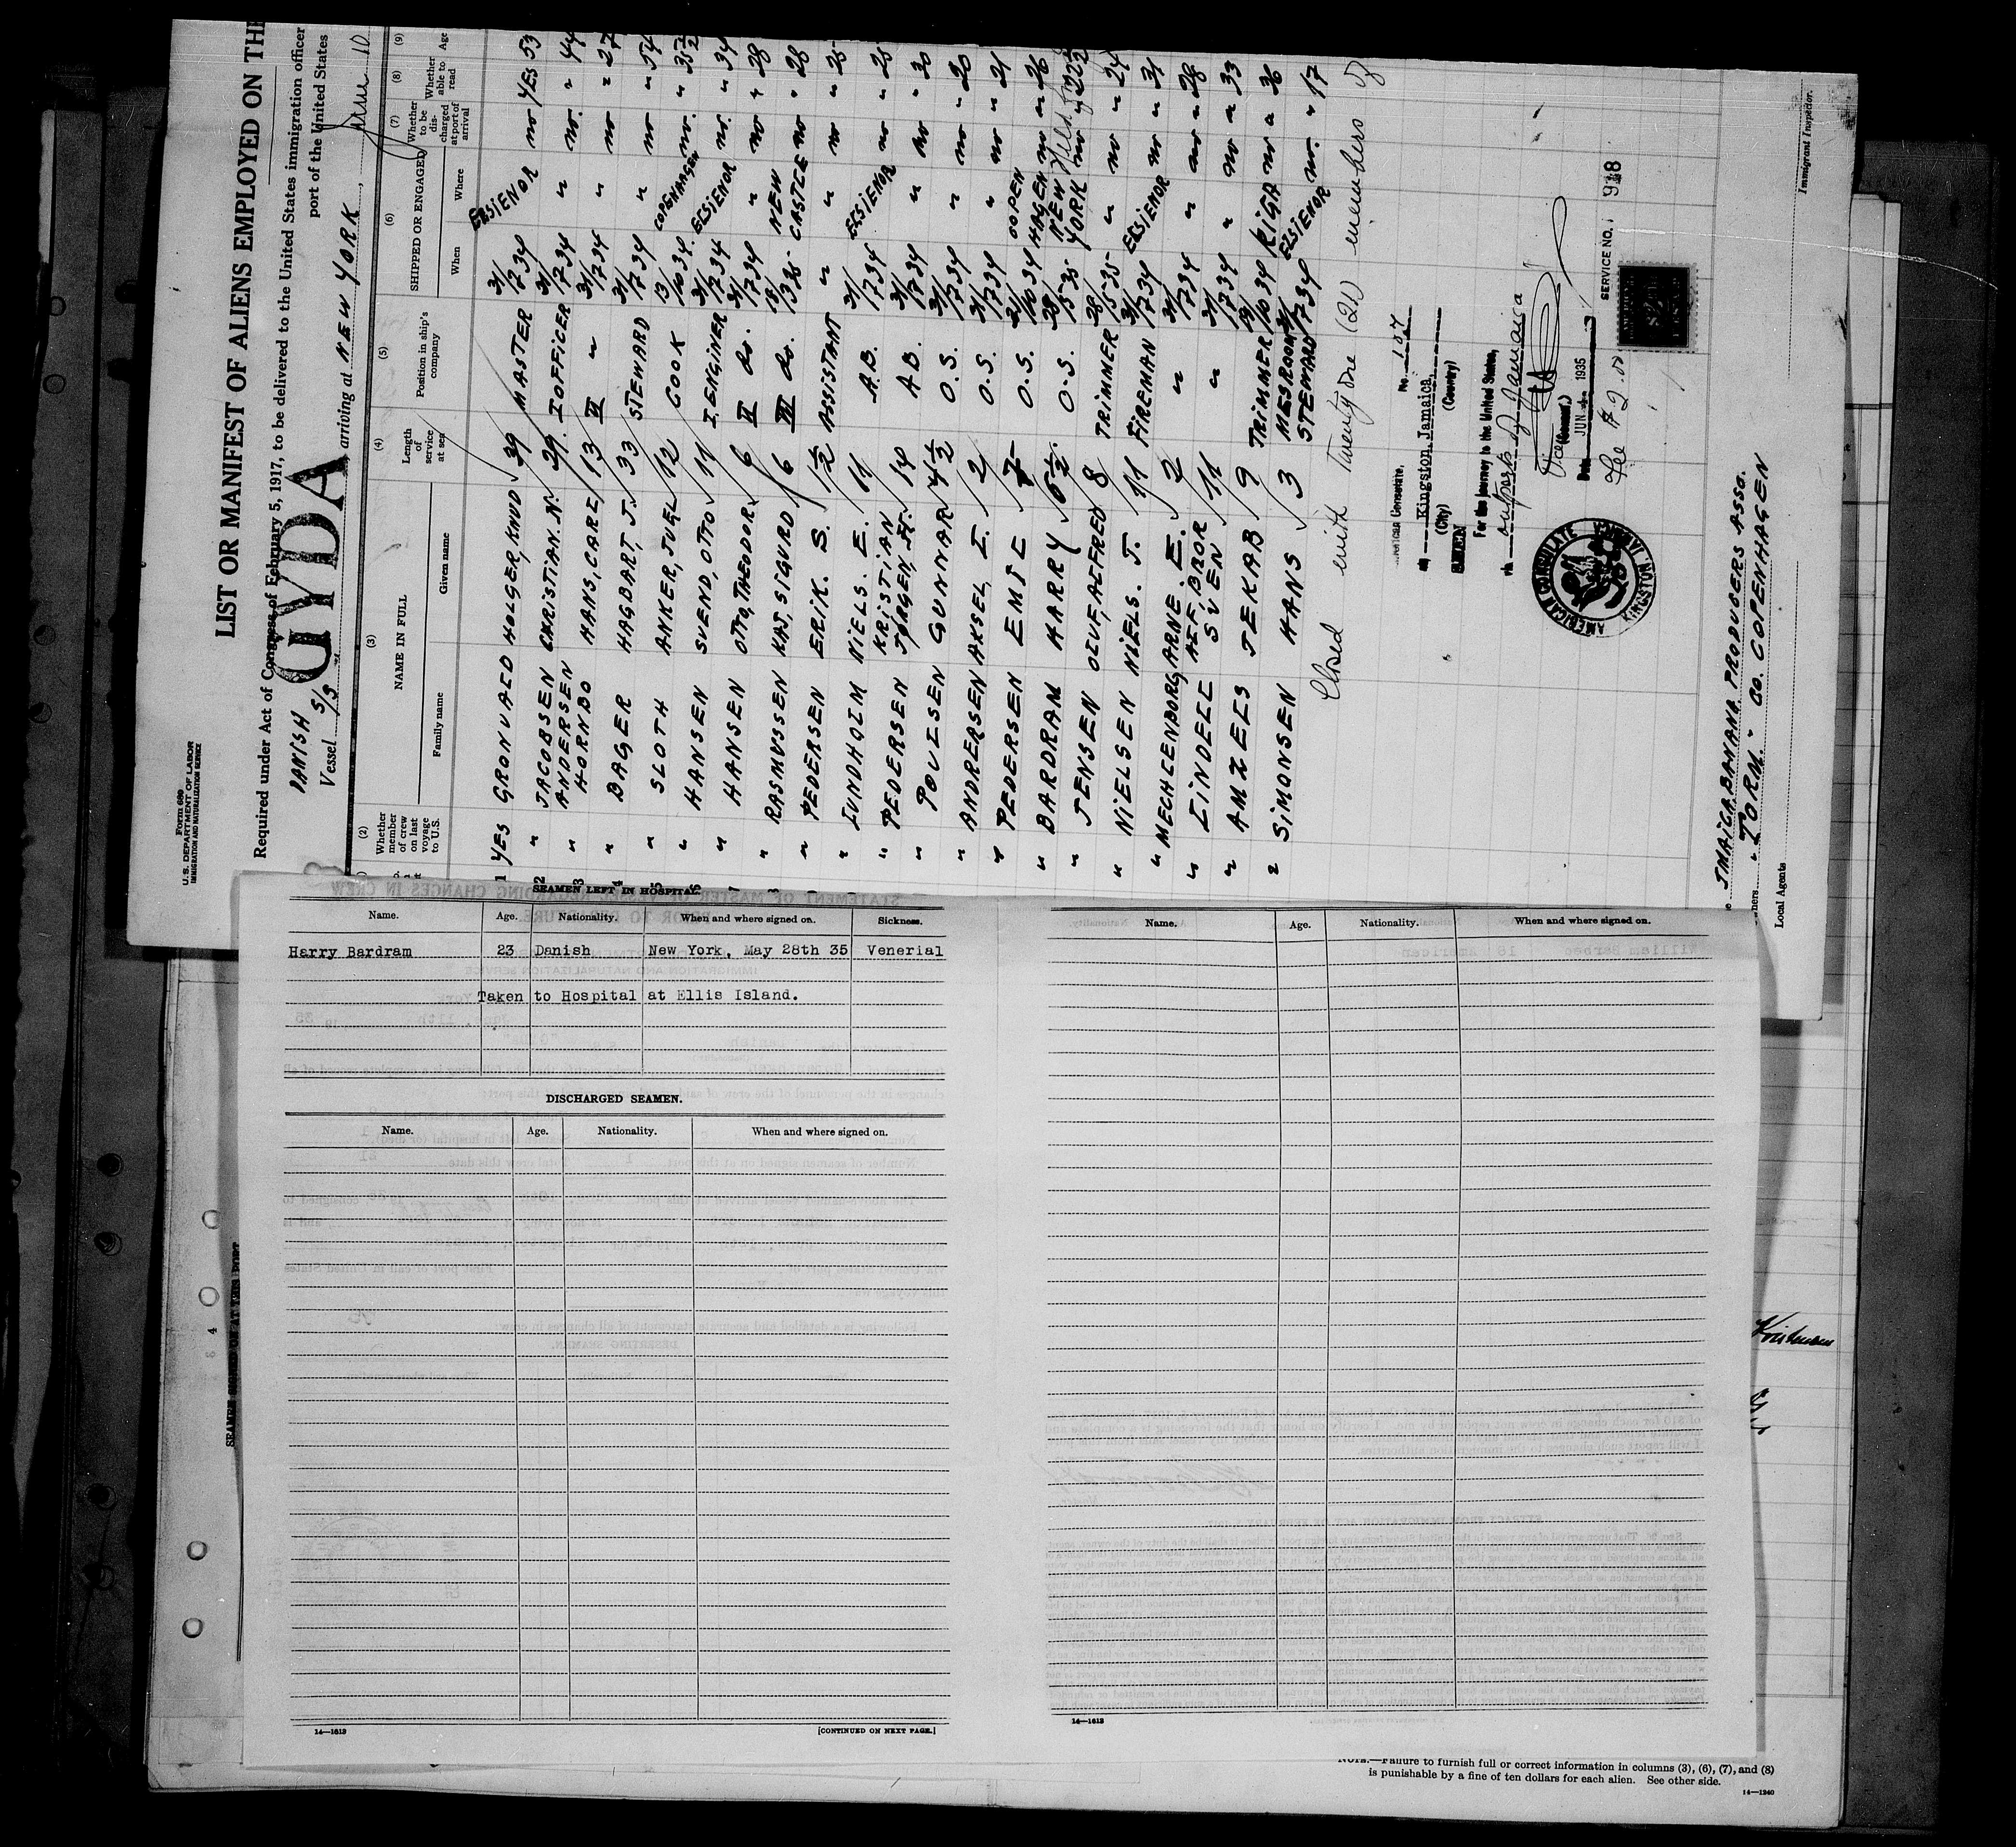 Form 680
U.S. DEPARTMENT OF LABOR
IMMIGRATION AND NATURALIZATION SERVICE
LIST OR MANIFEST OF ALIENS EMPLOYED ON THE
Required under Act of Congress of February 5, 1917, to be delivered to the United States immigration officer
port of the United States
DANISH
Vessel S/S GYDA, arriving at NEW YORK, June 10
(2) (3) (4) (5) (6) (7) (8) (9)
Whether member of crew on last voyage to U.S. NAME IN FULL Length of service at sea Position in ship's company SHIPPED OR ENGAGED Whether to be discharged at port of arrival Whether able to read Age
Family name Given name When Where
1 YES GRONVALD HOLGER, KNUD 39 MASTER 31/7 34 ELSIENOR no YES 53
2 " JACOBSEN CHRISTIAN. N. 29. I OFFICER 31/7 34 " no. " 44
3 " ANDERSEN HORNBO HANS, CARL 13 II " 31/7 34 " no " 27
4 " BAGER HAGBART, J. 33 STEWARD 31/7 34 " no " 54
5 " SLOTH ANKER, JUEL 12 COOK 13/10 34. COPENHAGEN no. " 35½
6 " HANSEN SVEND, OTTO 11 I. ENGINER 31/7 34 ELSIENOR no. " 34
7 " HANSEN OTTO, THEODOR 6 II do. 31/7 34 " no " 28
8 " RASMUSSEN KAJ, SIGURD 6 III do. 13/3 35 NEW CASTLE no " 28
" PEDERSEN ERIK. S. 1½ ASSISTANT " " no " 25
" LUNDHOLM NIELS. E. 11 A.B. 31/7 34 ELSIENOR no " 25
" PEDERSEN KRISTIAN JØRGEN, H. 14 A.B. 31/7 34 " no " 30
" POULSEN GUNNAR 4½ O.S. 31/7 34 " no " 20
" ANDERSEN AKSEL, I. 2 O.S. 31/7 34 " no " 21
" PEDERSEN EMIL O.S. 10 34 COPENHAGEN no " 26
" BARDRAM HARRY 6½. O.S. 28/5-35 NEW YORK no " 22½
" JENSEN OLUF, ALFRED 8 TRIMMER 28/5-35 " no " 24
" NIELSEN NIELS. J. 11 FIREMAN 31/7 34 ELSIENOR no " 31
" MECHLENBORG, ARNE. E. 2 " 31/7 34 " no " 28
" LINDELL ALF. BROR SVEN 11 " 31/7 34 " no " 33
" AMZELS JEKAB 9 TRIMMER 10 34 RIGA no " 36
" SIMONSEN HANS 3 MESROOM STEWARD 31/7 34 ELSIENOR no. " 17
Closed with Twenty One (21) members of
American Consulate, No. 107
at Kingston, Jamaica,
(City) (Country)
For the journey to the United States,
via outports of Jamaica
Vice (Consul.)
Date JUN 1935
Fee $2.00
SERVICE NO. 918
AMERICAN CONSULATE KINGSTON, JAMAICA
JMAICA. BANANA. PRODUSERS ASSO.
"TORM." Co. COPENHAGEN
Local Agents
Immigrant Inspector.
SEAMEN LEFT IN HOSPITAL
Name. Age. Nationality. When and where signed on. Sickness.
Harry Bardram 23 Danish New York, May 28th 35 Venerial
Taken to Hospital at Ellis Island.
DISCHARGED SEAMEN.
Name. Age. Nationality. When and where signed on.
14—1613 [CONTINUED ON NEXT PAGE.]
Name. Age. Nationality. When and where signed on.
14—1613
NOTE.—Failure to furnish full or correct information in columns (3), (6), (7), and (8)
is punishable by a fine of ten dollars for each alien. See other side.
14—1240